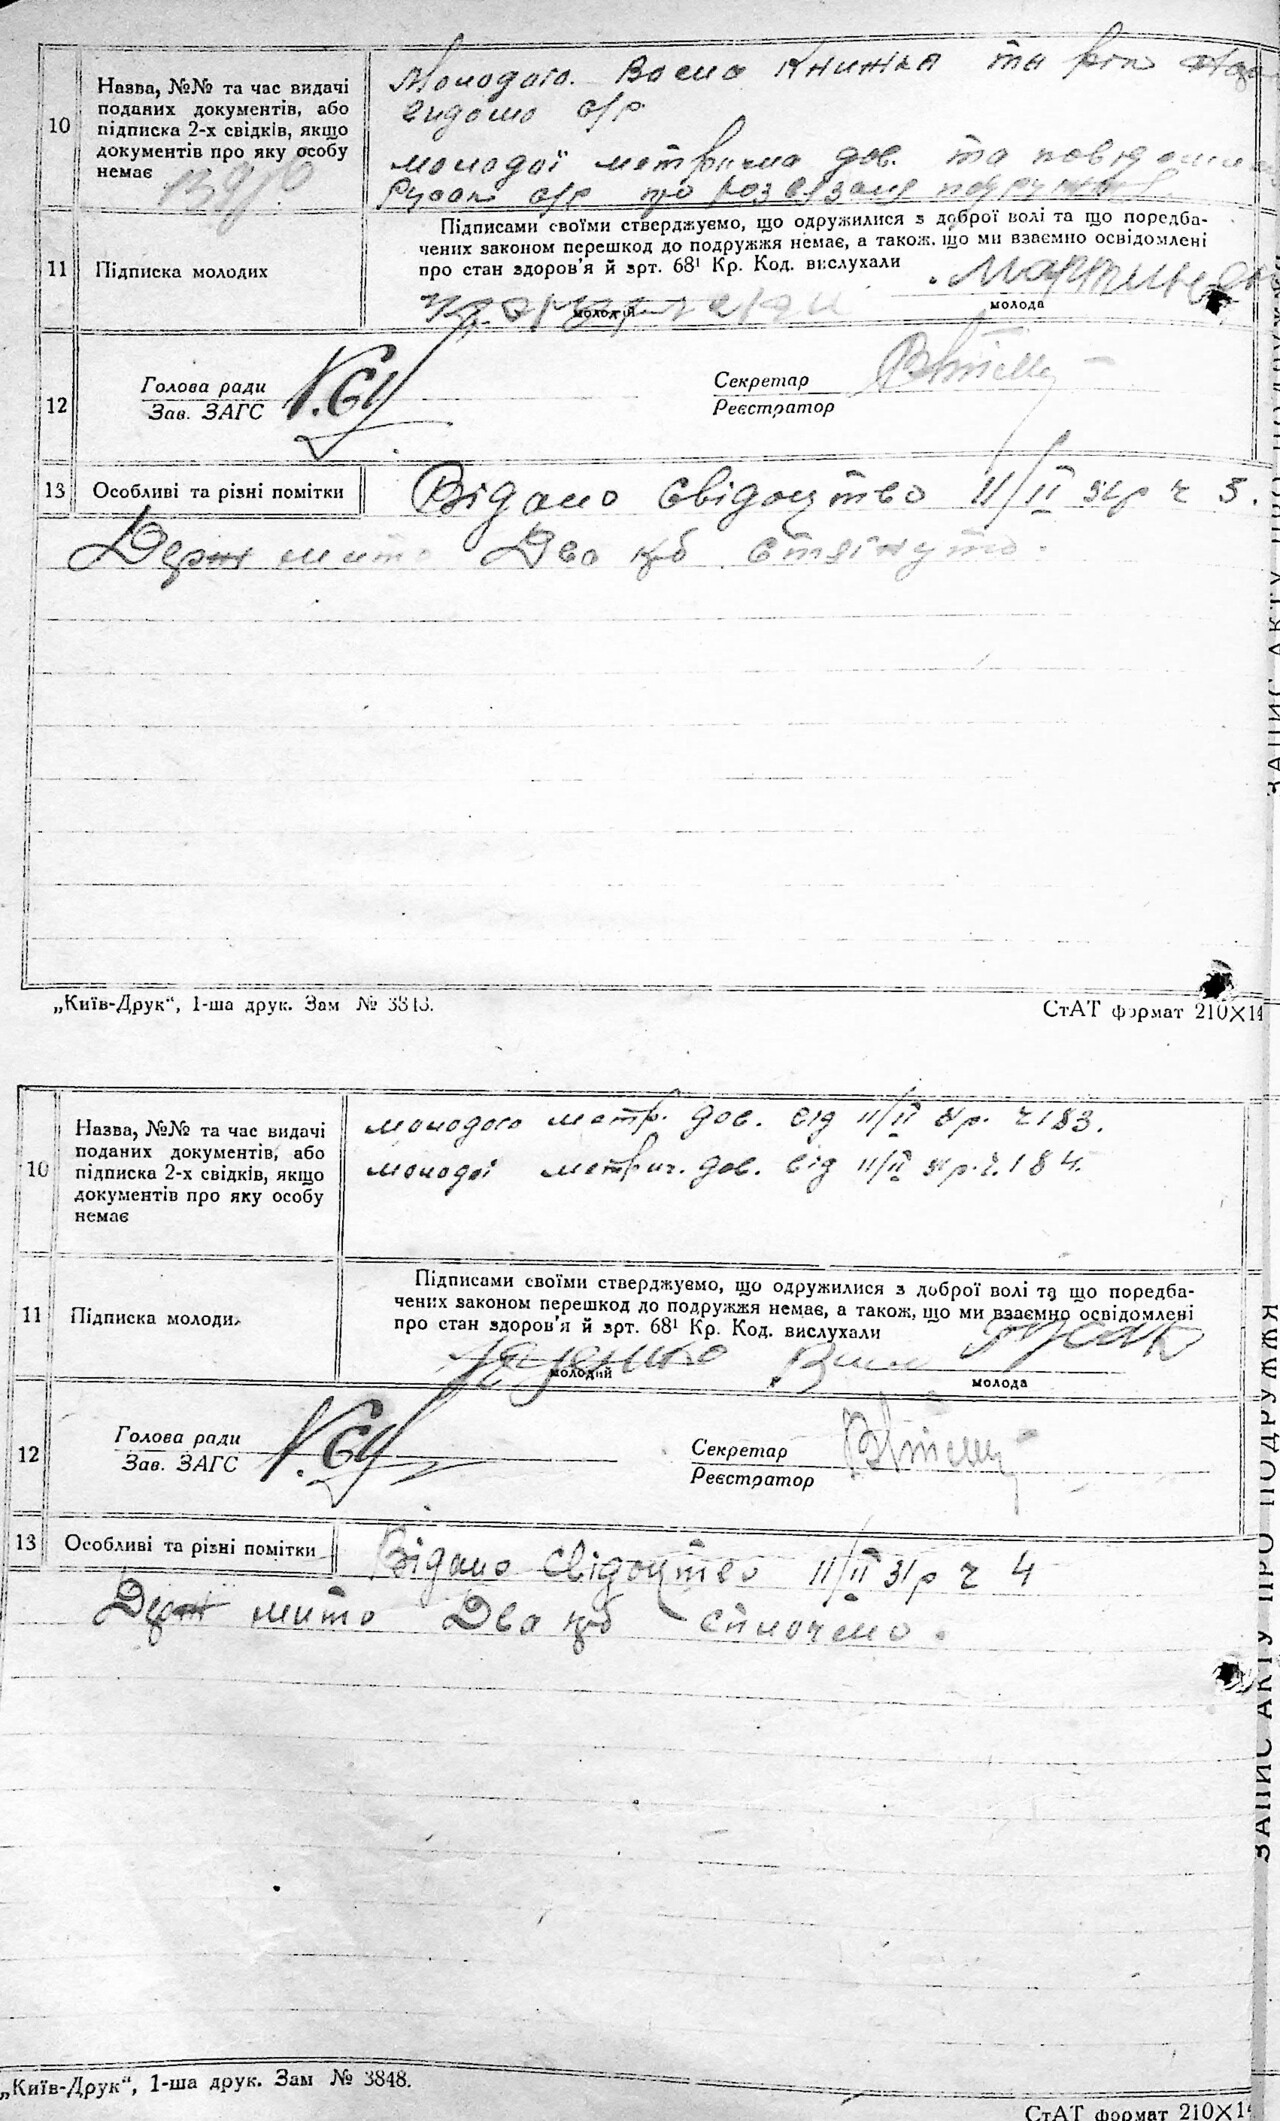 10
Назва, №№ та час видачі
поданих документів, або
підписка 2-х свідків, якщо
документів про яку особу
немає
Молодого. Воєна Книжка та
с/р
молодої метрична дов. та
с/р про розвязаня подружжя
11
Підписка молодих
Підписами своїми стверджуємо, що одружилися з доброї волі та що передба-
чених законом перешкод до подружжя немає, а також, що ми взаємно освідомлені
про стан здоров'я й арт. 68¹ Кр. Код. вислухали
молодий
молода
12
Голова ради
Зав. ЗАГС
Секретар
Реєстратор
13
Особливі та різні помітки
Відано свідоцтво 11/II 31р ч 3.
Держ мито Два крб стягнуто.
„Київ-Друк“, 1-ша друк. Зам №
СтАТ формат 210×14
ЗАПИС АКТУ ПРО ПОДРУЖЖЯ
10
Назва, №№ та час видачі
поданих документів, або
підписка 2-х свідків, якщо
документів про яку особу
немає
молодого метр. дов. від 11/II 31р. ч 183.
молодої метрич. дов. від 11/II 31р. ч. 184.
11
Підписка молоди
Підписами своїми стверджуємо, що одружилися з доброї волі та що передба-
чених законом перешкод до подружжя немає, а також, що ми взаємно освідомлені
про стан здоров'я й арт. 68¹ Кр. Код. вислухали
молодий
молода
12
Голова ради
Зав. ЗАГС
Секретар
Реєстратор
13
Особливі та різні помітки
Відано свідоцтво 11/II 31р ч 4
Держ мито Два крб сплочено.
„Київ-Друк“, 1-ша друк. Зам № 3848.
СтАТ формат 210×14
ЗАПИС АКТУ ПРО ПОДРУЖЖЯ